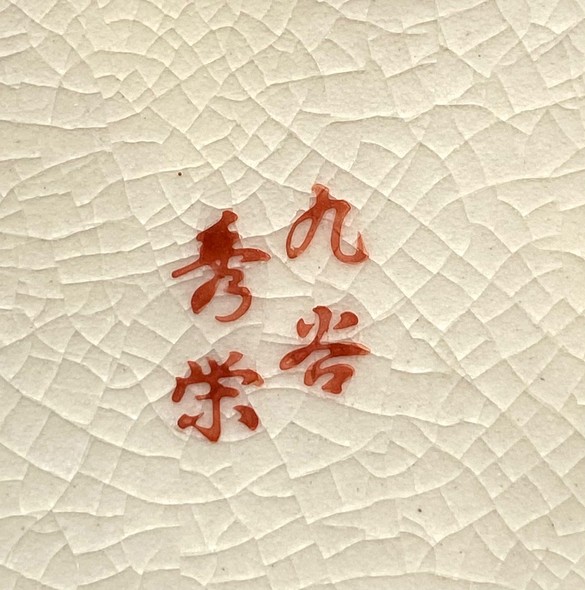 九谷
秀栄